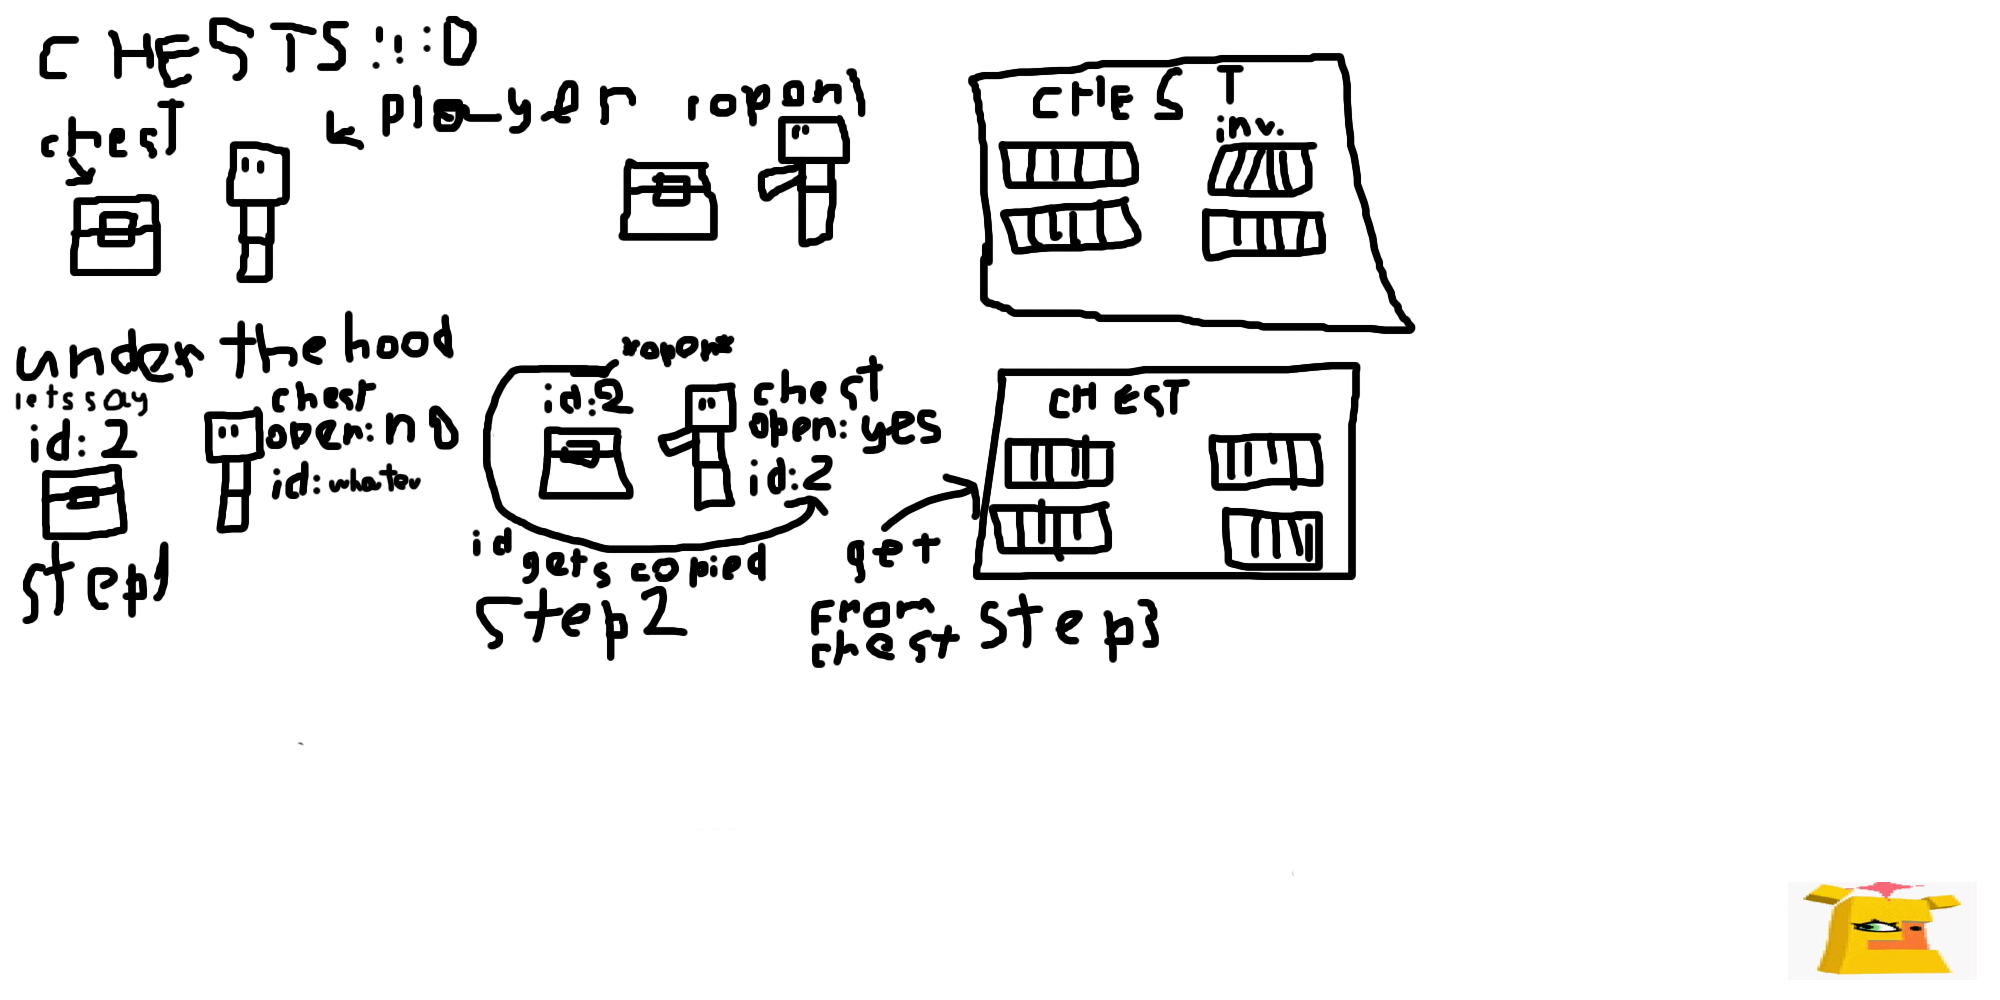 CHESTS!!:D
chest
player
!open!
CHEST
inv.
under the hood
lets say
id: 2
chest
open: no
id: whatev
step 1
*open*
id: 2
chest
open: yes
id: 2
id gets copied
step 2
get
from
chest
CHEST
step 3